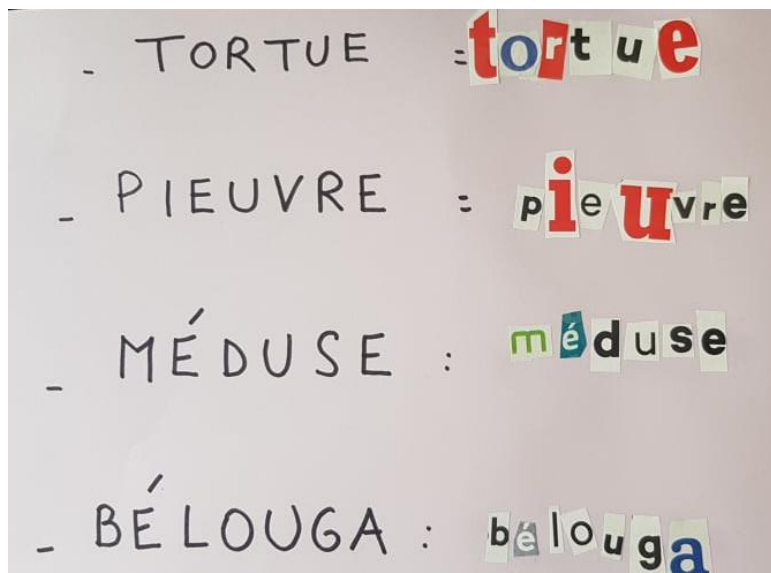 - TORTUE = tortue
- PIEUVRE = pieuvre
- MÉDUSE : méduse
- BÉLOUGA : bélouga